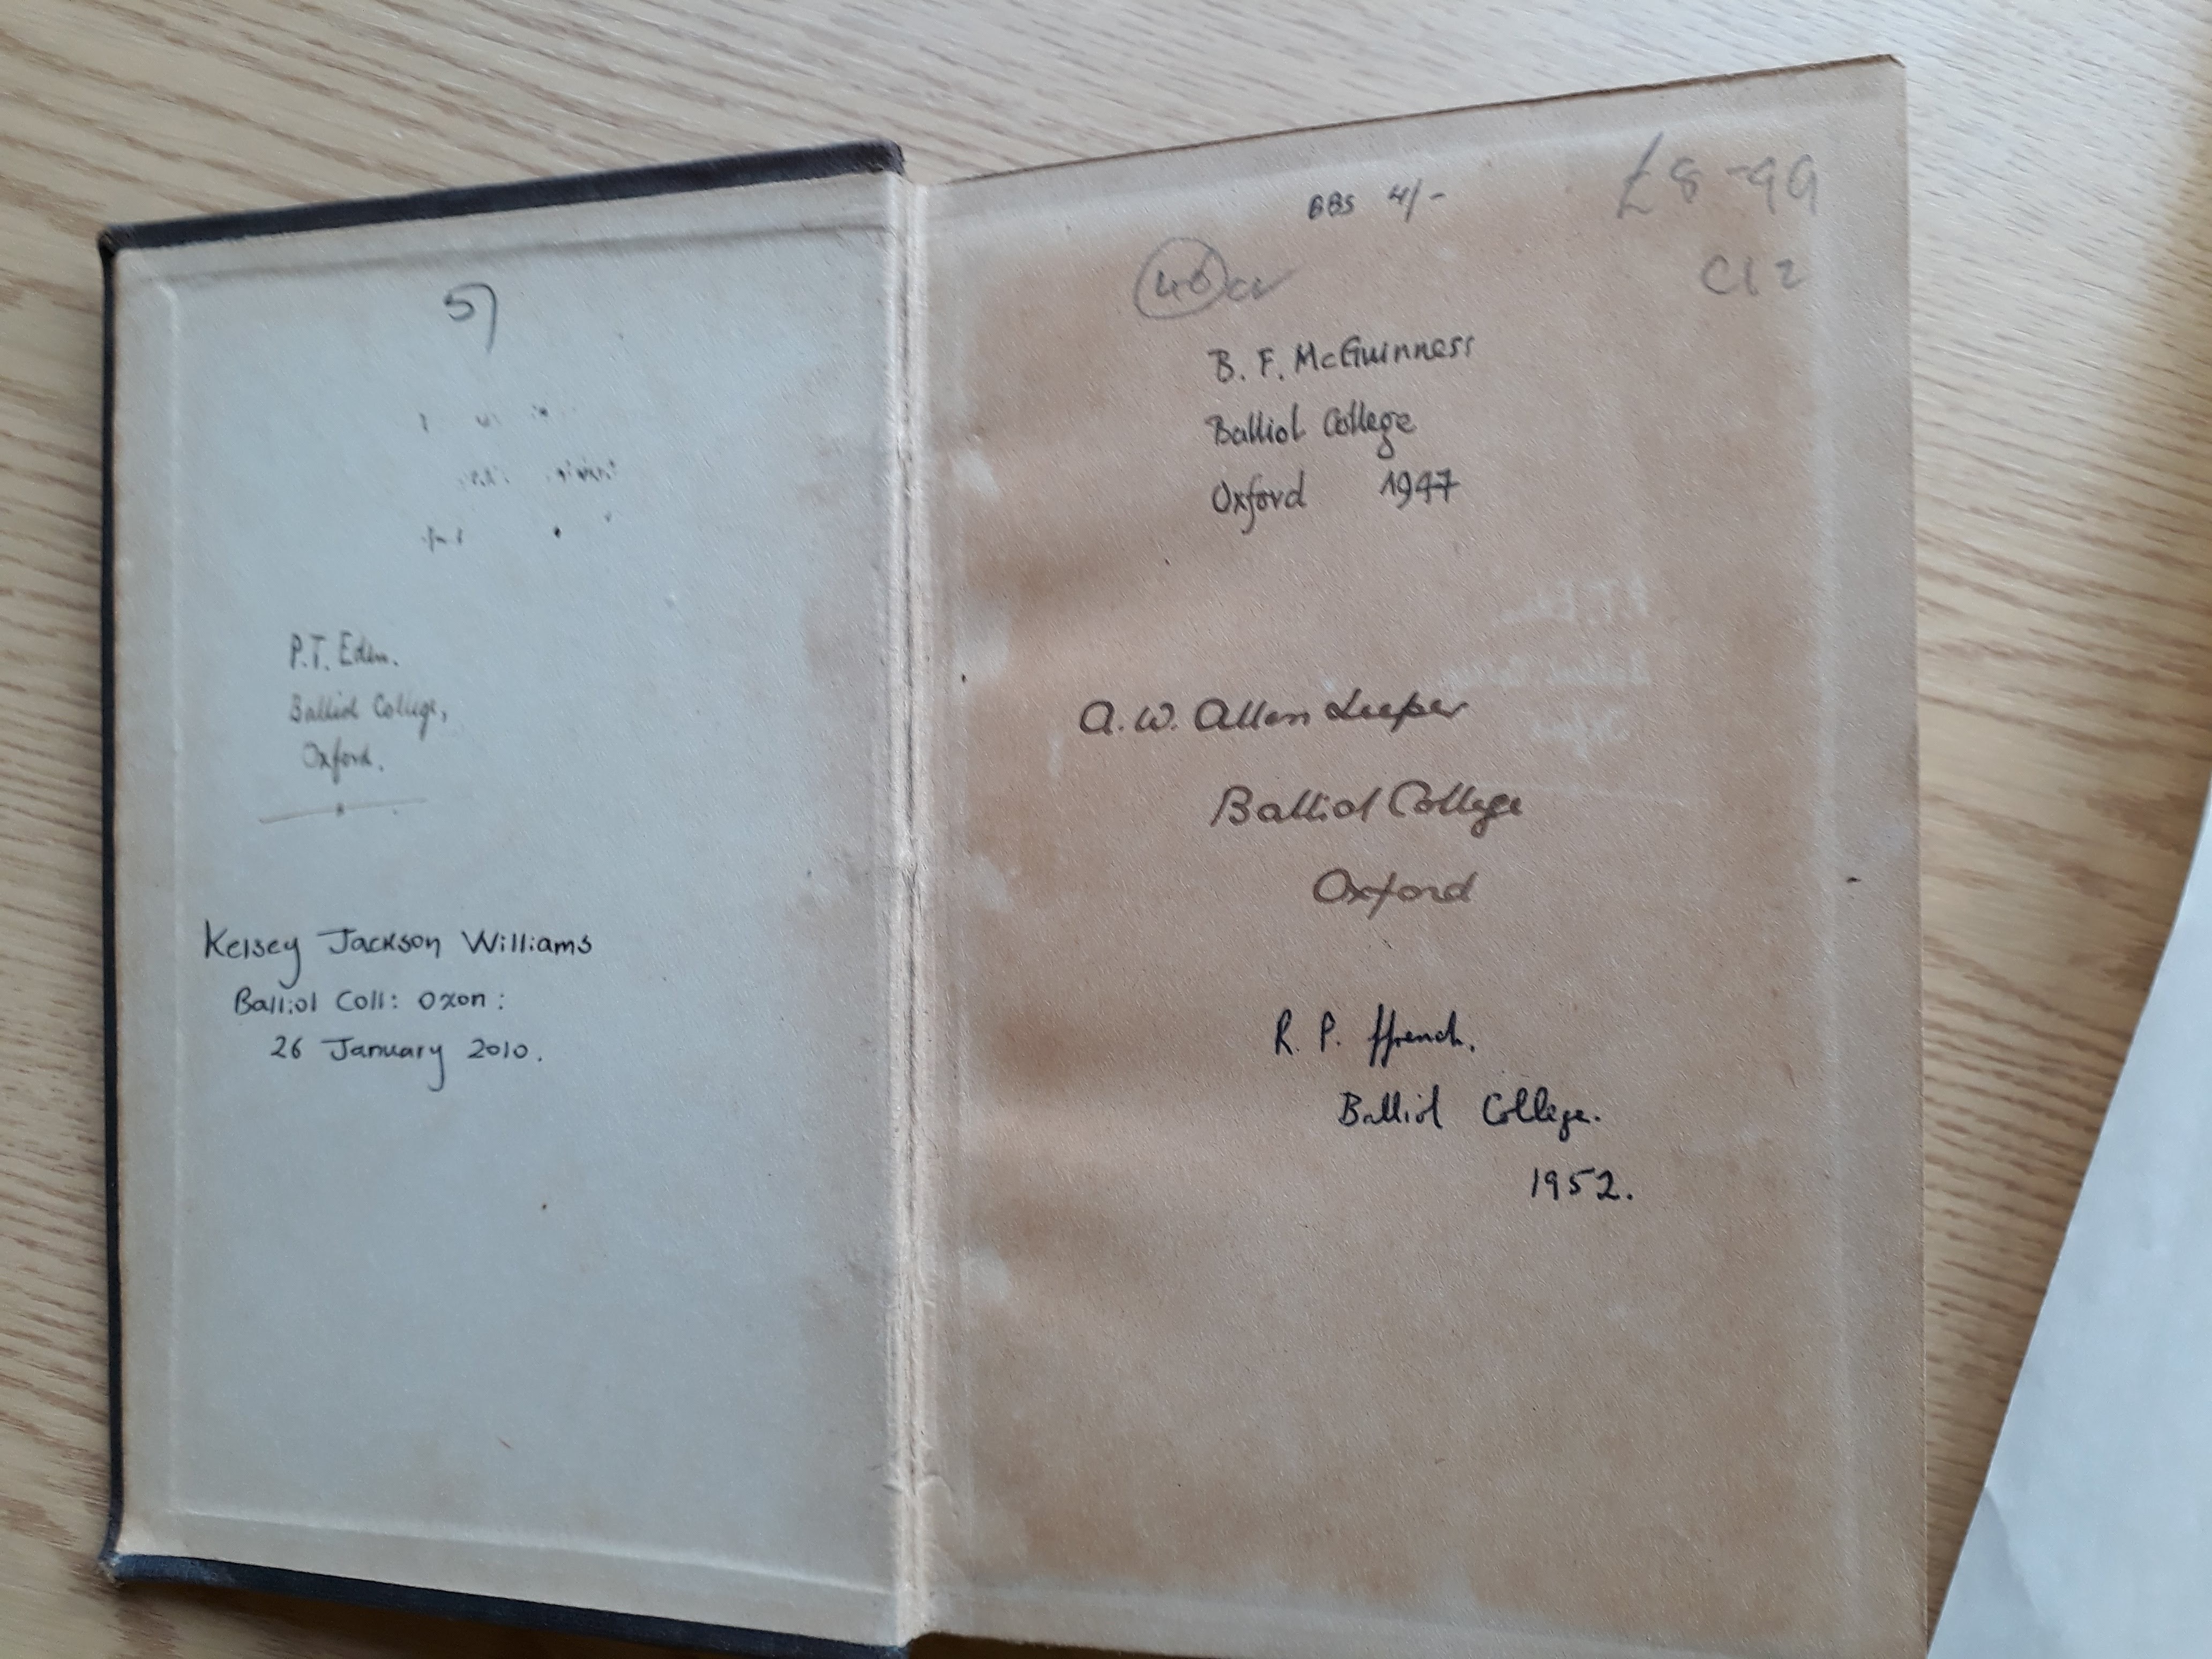 5)
P.T. Eden.
Balliol College,
Oxford.
Kelsey Jackson Williams
Balliol Coll: Oxon:
26 January 2010.
BBS 4/-
£8-99
C12
B. F. McGuinness
Balliol College
Oxford 1947
A. W. Allen Leeper
Balliol College
Oxford
R. P. ffrench.
Balliol College.
1952.